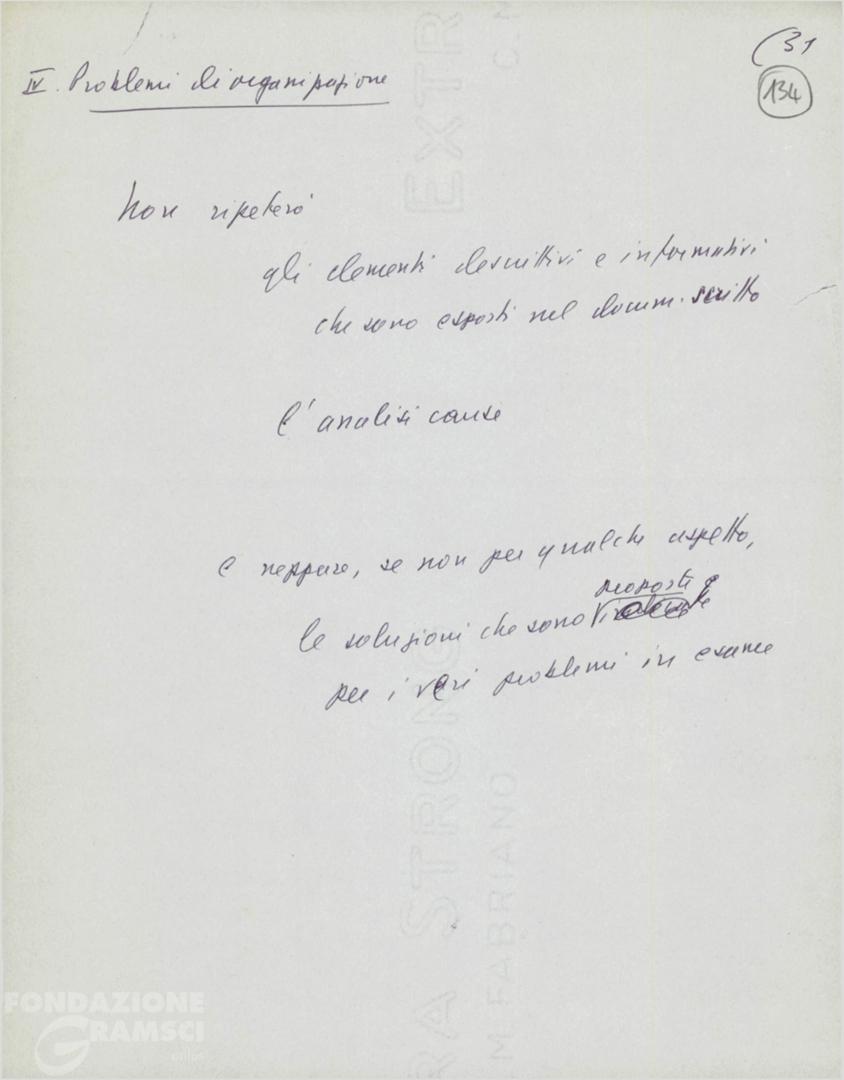 (31
134
IV. Problemi di organizzazione
Non ripeterò
gli elementi descrittivi e informativi
che sono esposti nel docum. scritto
l'analisi cause
e neppure, se non per qualche aspetto,
proposte
le soluzioni che sono
per i vari problemi in esame
EXTRA STRONG
C.M FABRIANO
FONDAZIONE
GRAMSCI
onlus